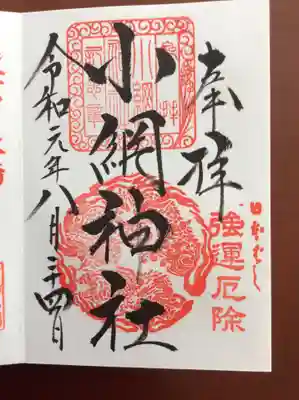 奉拝
日本ばし
強運厄除
小網神社
令和元年八月二十四日